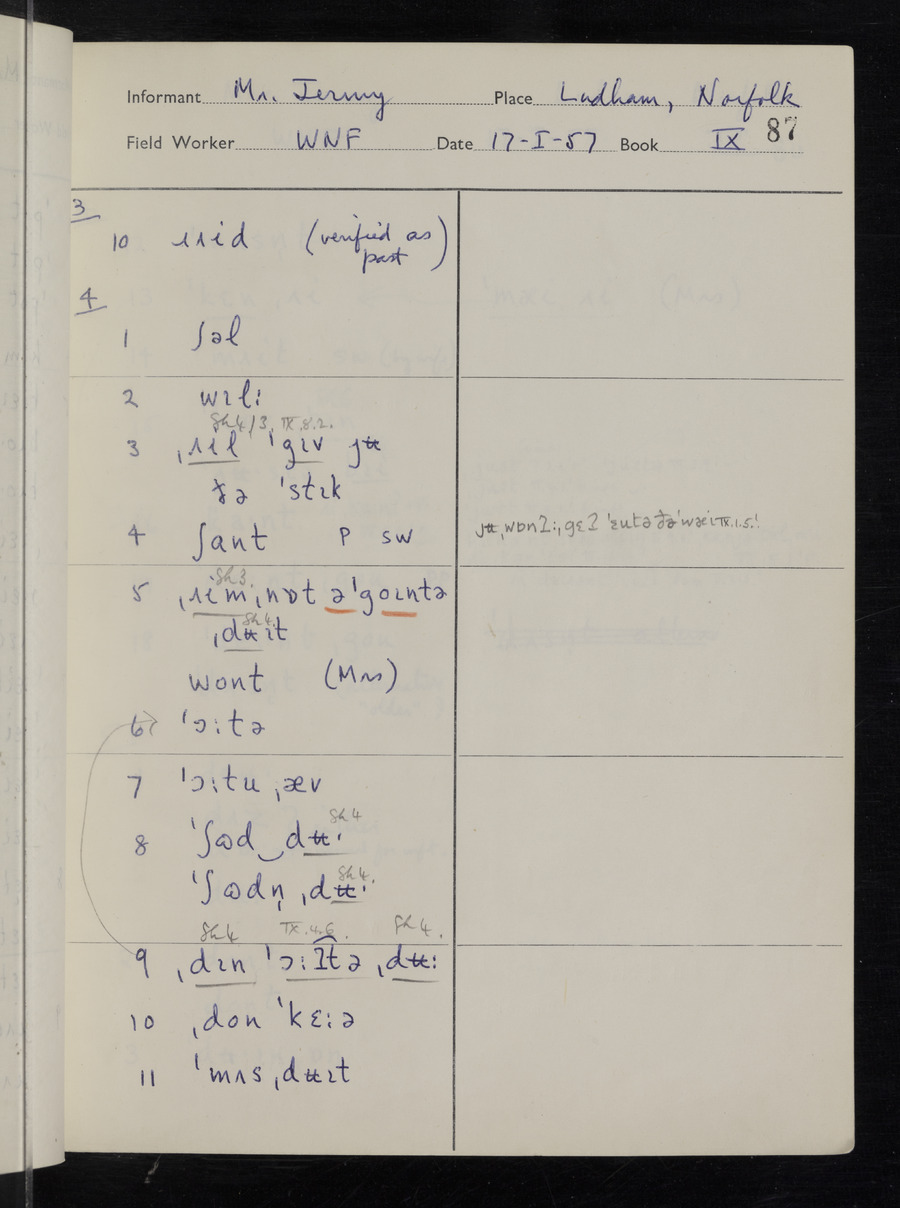 Informant Mr. Jermy Place Ludham, Norfolk
Field Worker WNF Date 17-I-57 Book IX 87
3
10 ɹɪid (verified as past)
4
1 ʃəl
2 wɪl:
Sh4/3, IX.8.2.
3 ˈgɪv jʉ
ðə ˈstɪk
4 ʃant P SW
5 Sh3.
ˌnɒt əˈgoɪntə
Sh4.
ˌdʉɪt
wont (Mrs)
6 ˈɔːtə
7 ˈɔːtu ˌæv
Sh4
8 ˈʃɷd‿dʉˑ
Sh4.
ˈʃɷdn̩ ˌdʉˑ
Sh4 IX.4.6. Sh4.
9 ˌdɪn ˈɔːʔtə ˌdʉː
10 ˌdon ˈkɛːə
11 ˈmʌs ˌdʉɪt